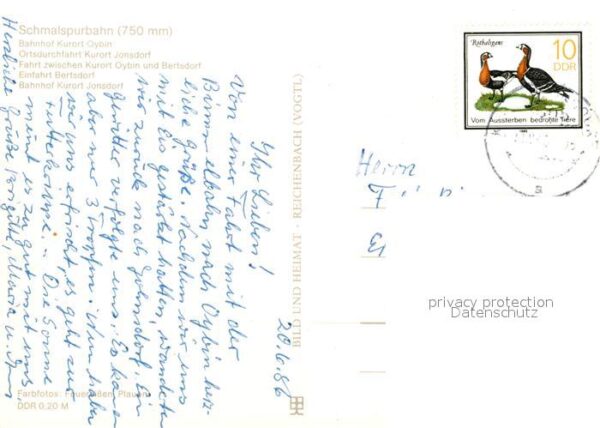 Schmalspurbahn (750 mm)
Bahnhof Kurort Oybin
Ortsdurchfahrt Kurort Jonsdorf
Fahrt zwischen Kurort Oybin und Bertsdorf
Einfahrt Bertsdorf
Bahnhof Kurort Jonsdorf
20.6.86
Ihr Lieben!
Von einer Fahrt mit der
Bimmelbahn nach Oybin herz-
liche Grüße. Nachdem wir uns
mit Eis gestärkt hatten, wanderten
wir zurück nach Jonsdorf. Ein
Gewitter verfolgte uns. Es kamen
aber nur 3 Tropfen. Nun haben
wir uns erfrischt, es geht zur
Die Sonne
meint es zu gut mit uns
Herzliche Grüße Brigitte, u.
Farbfotos: Plauen
DDR 0,20 M
BILD UND HEIMAT · REICHENBACH (VOGTL)
Rothalsgans
10
DDR
Vom Aussterben bedrohte Tiere
Herrn
privacy protection
Datenschutz